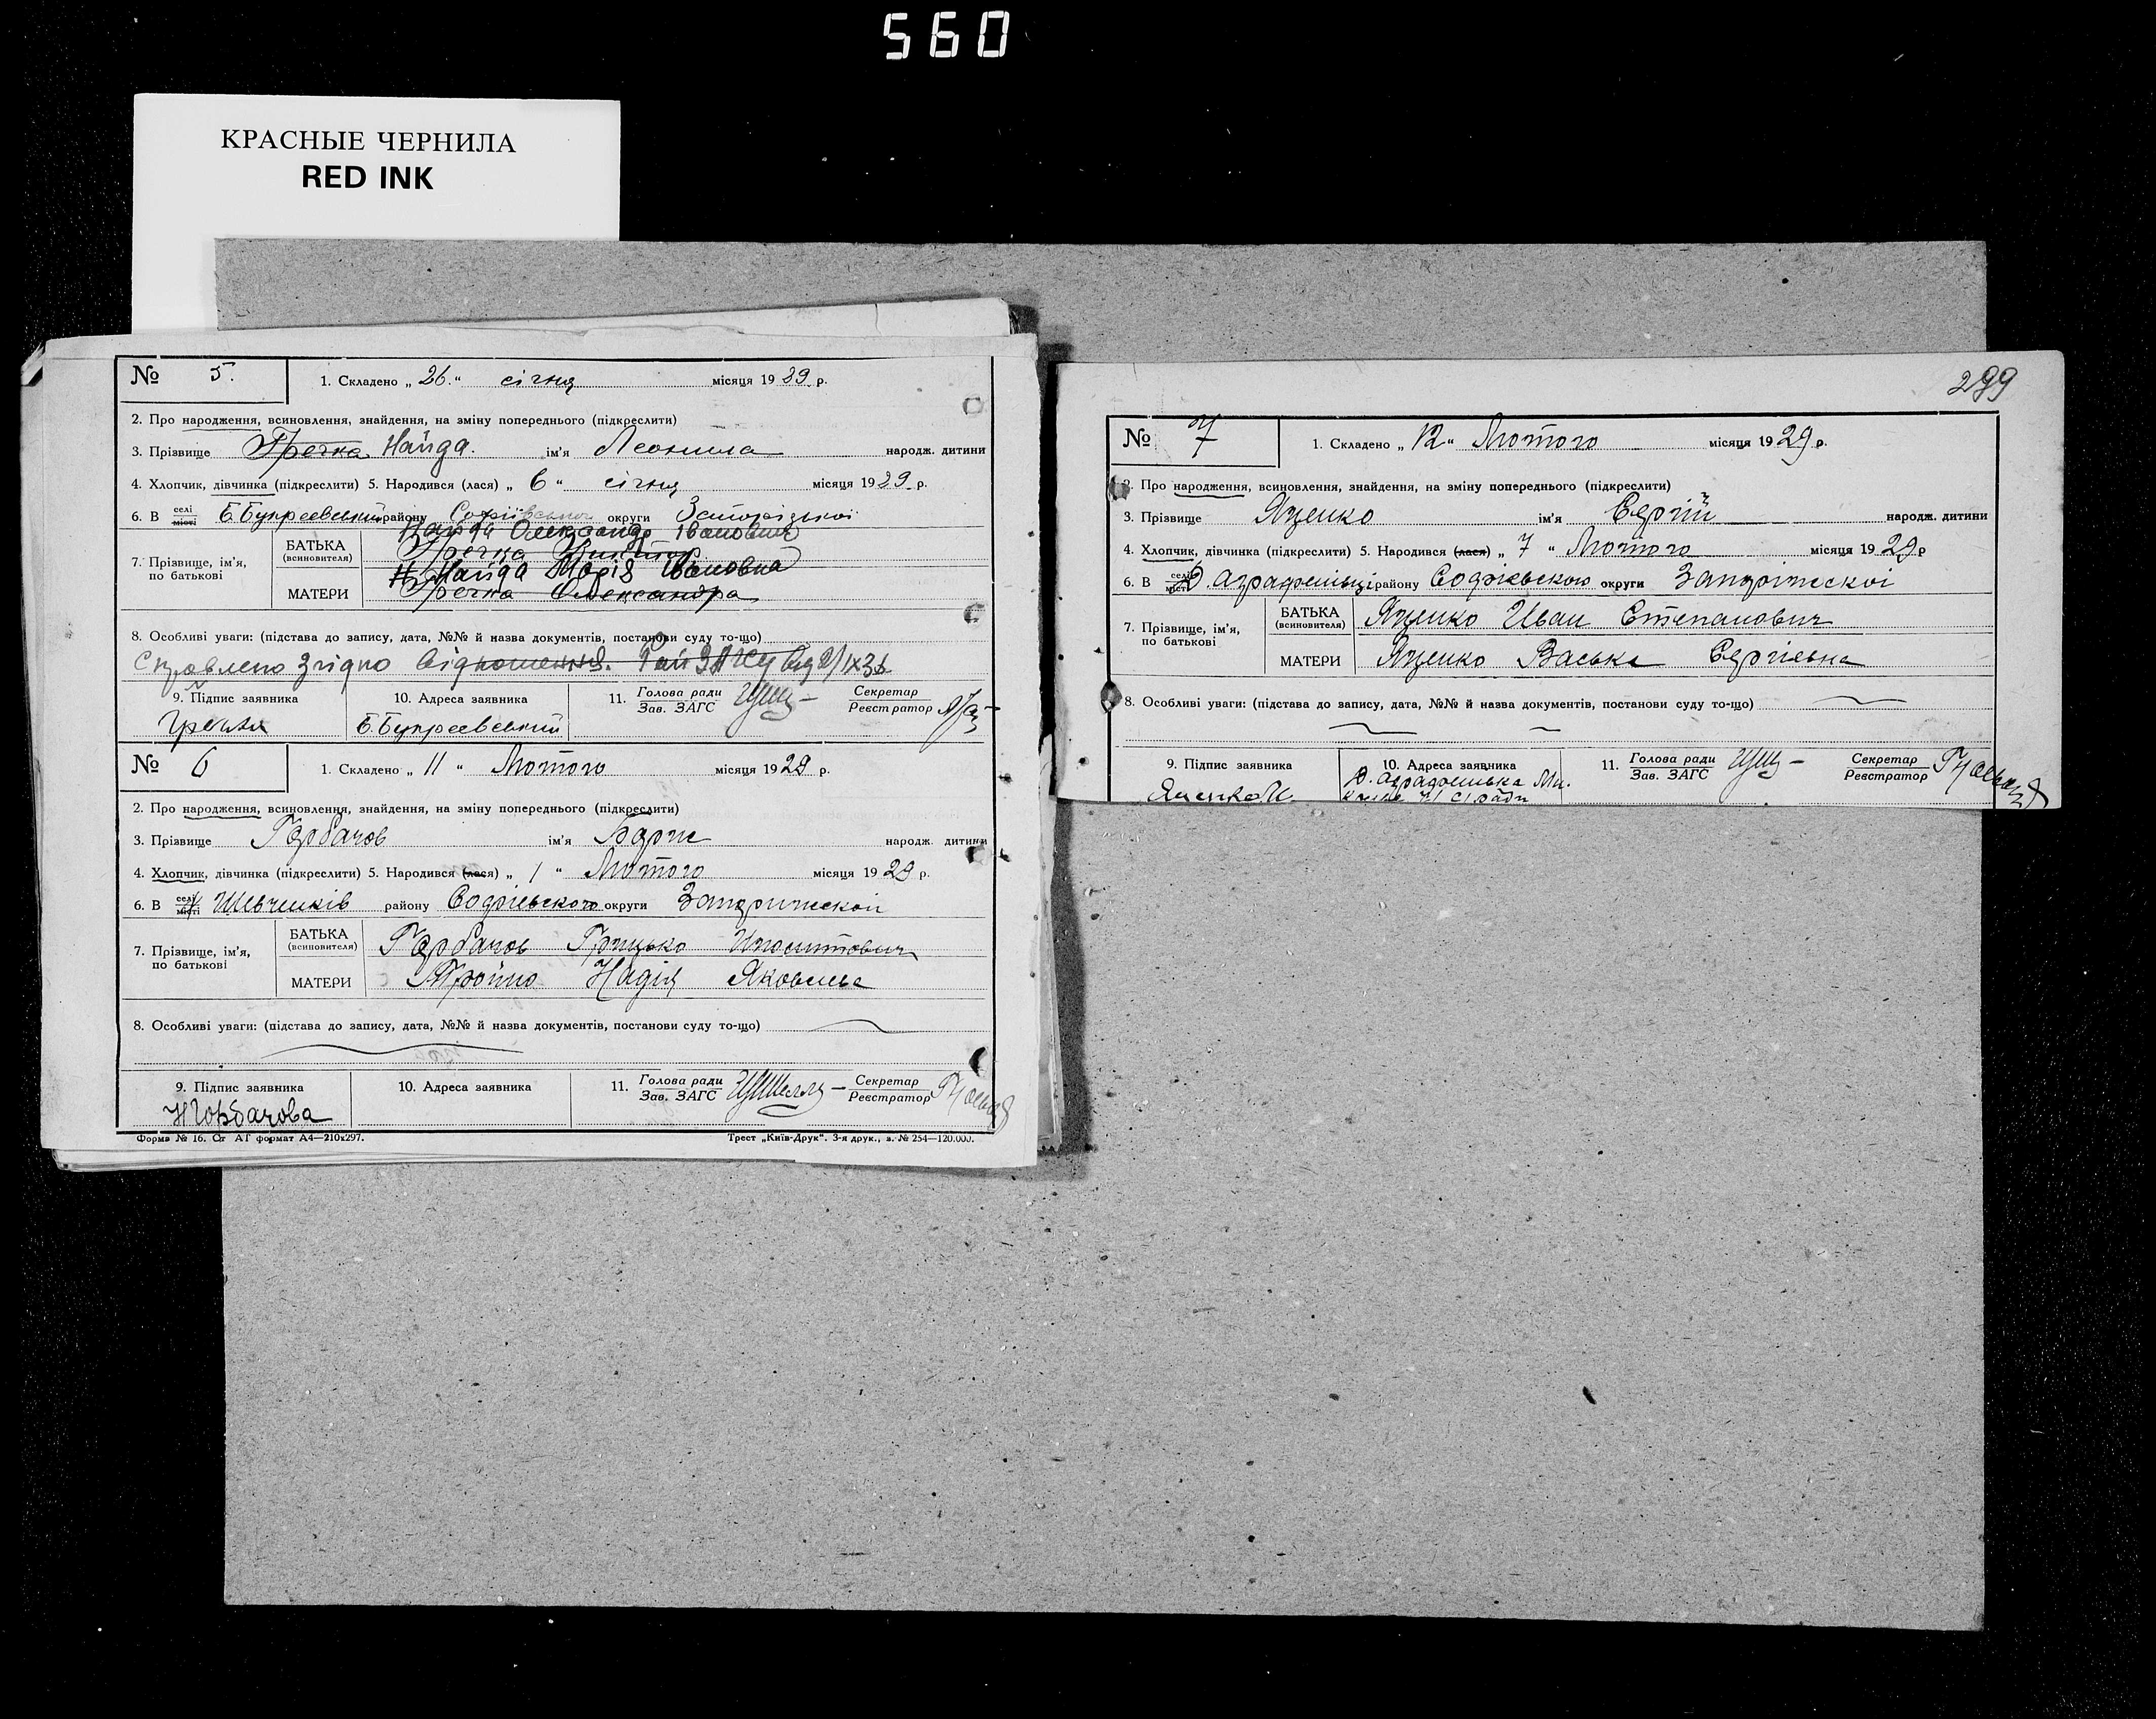 560
КРАСНЫЕ ЧЕРНИЛА
RED INK
№ 5. 1. Складено „ 26. “ січня місяця 1929 р.
2. Про народження, всиновлення, знайдення, на зміну попереднього (підкреслити)
3. Прізвище Гречка Найда. ім'я Леонила народж. дитини
4. Хлопчик, дівчинка (підкреслити) 5. Народився (лася) „ 6 “ січня місяця 1929 р.
6. В селі місті Б.Букреевський району Софіївського округи Запорізької
Найда Олександр Івановичь
7. Прізвище, ім'я, по батькові БАТЬКА (всиновителя) Гречка
Найда Марія Івановна
МАТЕРИ Гречка Олександра
8. Особливі уваги: (підстава до запису, дата, №№ й назва документів, постанови суду то-що)
Справлено Згідно Відношення. Рай ЗАГСу
9. Підпис заявника 10. Адреса заявника 11. Голова ради Зав. ЗАГС Секретар Реєстратор
Гречка Б.Букреевський
№ 6 1. Складено „ 11 “ Лютого місяця 1929 р.
2. Про народження, всиновлення, знайдення, на зміну попереднього (підкреслити)
3. Прізвище Горбачов ім'я Борис народж. дитини
4. Хлопчик, дівчинка (підкреслити) 5. Народився (лася) „ 1 “ Лютого місяця 1929 р.
6. В селі місті Шевченків району Софієвского округи Запоріжскоі
7. Прізвище, ім'я, по батькові БАТЬКА (всиновителя) Горбачов Грицько
МАТЕРИ Надія Яковлівна
8. Особливі уваги: (підстава до запису, дата, №№ й назва документів, постанови суду то-що)
9. Підпис заявника 10. Адреса заявника 11. Голова ради Зав. ЗАГС Секретар Реєстратор
Н Горбачова
Форма № 16. Ст АГ формат А4—210x297. Трест „Київ-Друк“. 3-я друк., з. № 254—120.000.
299
№ 7 1. Складено „ 12 “ Лютого місяця 1929 р.
2. Про народження, всиновлення, знайдення, на зміну попереднього (підкреслити)
3. Прізвище Яценко ім'я Сергій народж. дитини
4. Хлопчик, дівчинка (підкреслити) 5. Народився (лася) „ 7 “ Лютого місяця 1929 р
6. В селі місті району Софієвского округи Запоріжскоі
7. Прізвище, ім'я, по батькові БАТЬКА (всиновителя) Яценко Иван Степанович
МАТЕРИ Яценко Васька Сергіевна
8. Особливі уваги: (підстава до запису, дата, №№ й назва документів, постанови суду то-що)
9. Підпис заявника 10. Адреса заявника 11. Голова ради Зав. ЗАГС Секретар Реєстратор